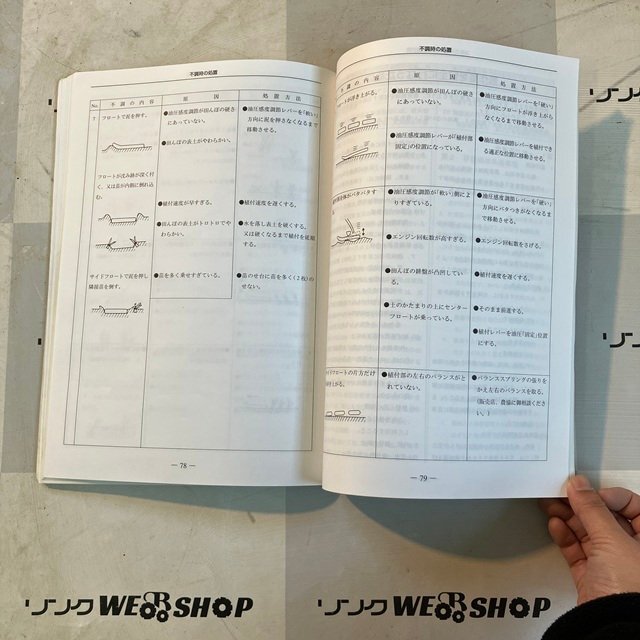 不調時の処置
No.
不調の内容
原因
処置方法
7
フロートで泥を押す。
●油圧感度調節が田んぼの硬さ
にあっていない。
●油圧感度調節レバーを「軟い」
方向に泥を押さなくなるまで
移動させる。
●田んぼの表土がやわらかい。
フロートが沈み跡が深く付
く、又は苗が内側に倒れ込
む。
●植付速度が早すぎる。
●植付速度を遅くする。
●田んぼの表土がトロトロでや
わらかい。
●水を落し表土を硬くする。
又は硬くなるまで植付を延期
する。
サイドフロートで泥を押し
隣接苗を倒す。
●苗を多く乗せすぎている。
●苗のせ台に苗を多く(2枚)の
せない。
― 78 ―
不調時の処置
不調の内容
原因
処置方法
フロートが浮き上がる。
●油圧感度調節が田んぼの硬さ
にあっていない。
●油圧感度調節レバーを「硬い」
方向にフロートが浮き上がら
なくなるまで移動させる。
●油圧感度調節レバーが「植付部
固定」の位置になっている。
●油圧感度調節レバーを植付でき
る適正な位置に移動させる。
体がバタバタす
る。
●油圧感度調節が「軟い」側によ
りすぎている。
●油圧感度調節レバーを「硬い」
方向にバタつきがなくなるま
で移動させる。
●エンジン回転数が高すぎる。
●エンジン回転数をさげる。
●田んぼの耕盤が凸凹してい
る。
●植付速度を遅くする。
●土のかたまりの上にセンター
フロートが乗っている。
●そのまま前進する。
●植付レバーを油圧「固定」位置
にする。
イドフロートの片方だけ
上がる。
●植付部の左右のバランスがと
れていない。
●バランススプリングの張りを
かえ左右のバランスを取る。
(販売店、農協に御相談くださ
い。)
― 79 ―
リンク
リンク WEB SHOP
リンク WEB SHOP